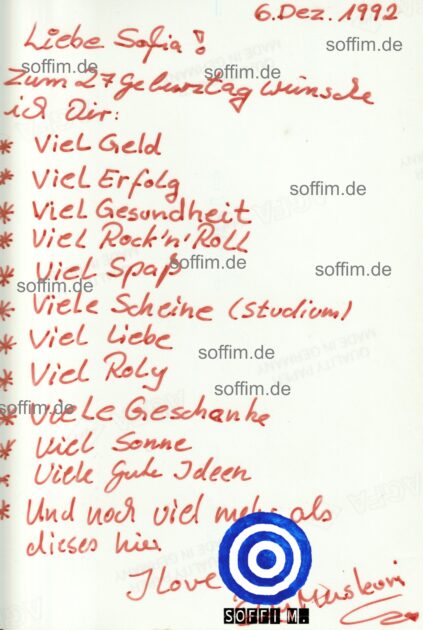 6. Dez. 1992
Liebe Sofia!
Zum 27 Geburtztag wünsche
ich Dir:
* Viel Geld
* Viel Erfolg
* Viel Gesundheit
* Viel Rock'n'Roll
* Viel Spaß
* Viele Scheine (Studium)
* Viel Liebe
* Viel Roly
* Viele Geschenke
* Viel Sonne
* Viele gute Ideen
* Und noch viel mehr als
dieses hier
I love
SOFFIM.
soffim.de
soffim.de
soffim.de
soffim.de
soffim.de
soffim.de
soffim.de
soffim.de
soffim.de
soffim.de